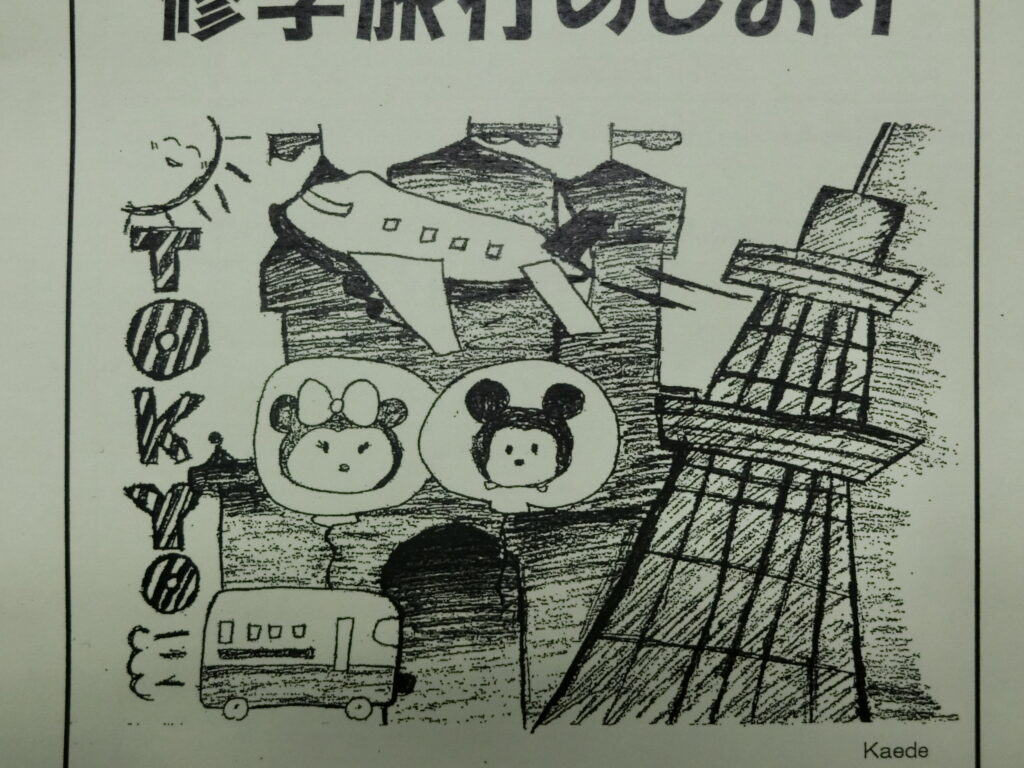 修学旅行のしおり
TOKYO
Kaede